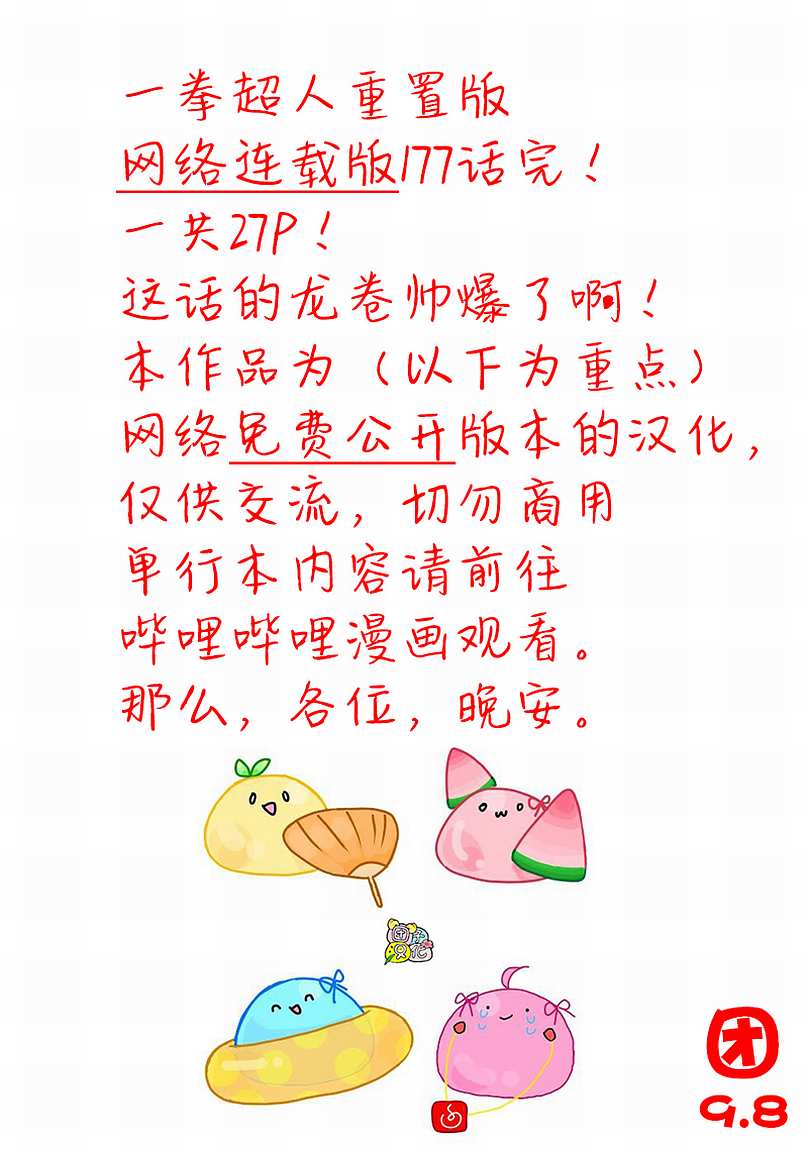 一拳超人重置版
网络连载版177话完！
一共27P！
这话的龙卷帅爆了啊！
本作品为（以下为重点）
网络免费公开版本的汉化，
仅供交流，切勿商用
单行本内容请前往
哔哩哔哩漫画观看。
那么，各位，晚安。
团
9.8